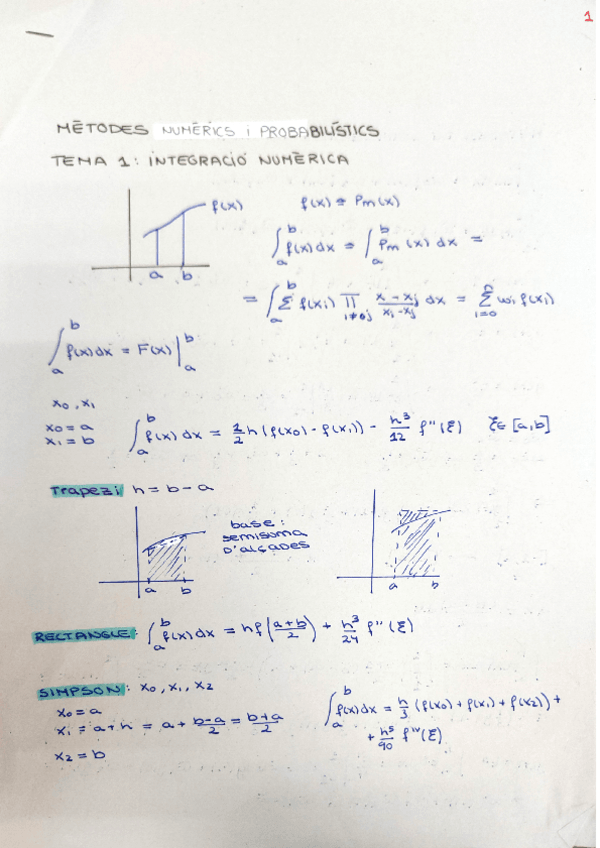 1
MÈTODES NUMÈRICS i PROBABILÍSTICS
TEMA 1: INTEGRACIÓ NUMÈRICA
f(x)
f(x) ≈ Pm(x)
a b
∫_a^b f(x) dx ≈ ∫_a^b Pm(x) dx =
= ∫_a^b Σ f(xi) ∏_{i≠j} (x - xj)/(xi - xj) dx = Σ_{i=0}^n wi f(xi)
∫_a^b f(x) dx = F(x) |_a^b
x0, x1
x0 = a
x1 = b
∫_a^b f(x) dx = 1/2 h (f(x0) - f(x1)) - h^3/12 f''(ξ) ξ ∈ [a, b]
Trapezi: h = b - a
base:
SEMISUMA
D'ALÇADES
a b
a b
RECTANGLE: ∫_a^b f(x) dx = h f((a+b)/2) + h^3/24 f''(ξ)
SIMPSON: x0, x1, x2
x0 = a
x1 = a + h = a + (b-a)/2 = (b+a)/2
x2 = b
∫_a^b f(x) dx = h/3 (f(x0) + f(x1) + f(x2)) +
+ h^5/90 f^IV(ξ)